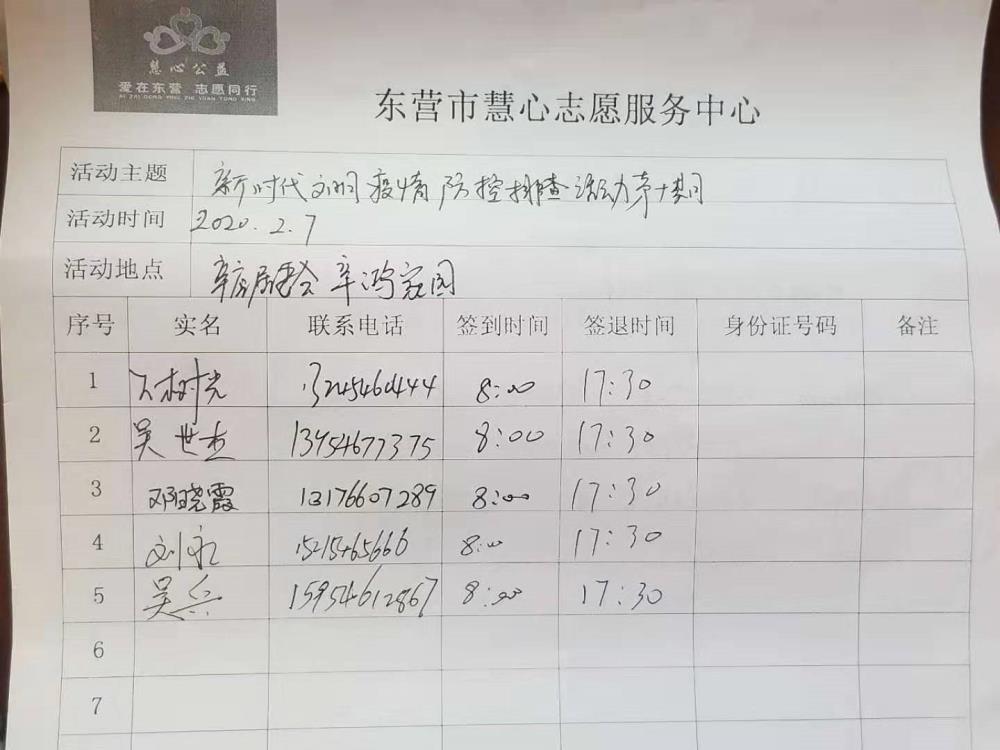 慧心公益
爱在东营 志愿同行
AI ZAI DONG YING ZHI YUAN TONG XING
东营市慧心志愿服务中心
活动主题 新时代文明疫情防控排查活动第十期
活动时间 2020.2.7
活动地点 辛店居委会 辛鸿家园
序号 实名 联系电话 签到时间 签退时间 身份证号码 备注
1 树光 8:00 17:30
2 吴世杰 13954677375 8:00 17:30
3 邓晓霞 13176607289 8:00 17:30
4 刘永 15215465666 8:00 17:30
5 吴兵 15954612867 8:00 17:30
6
7